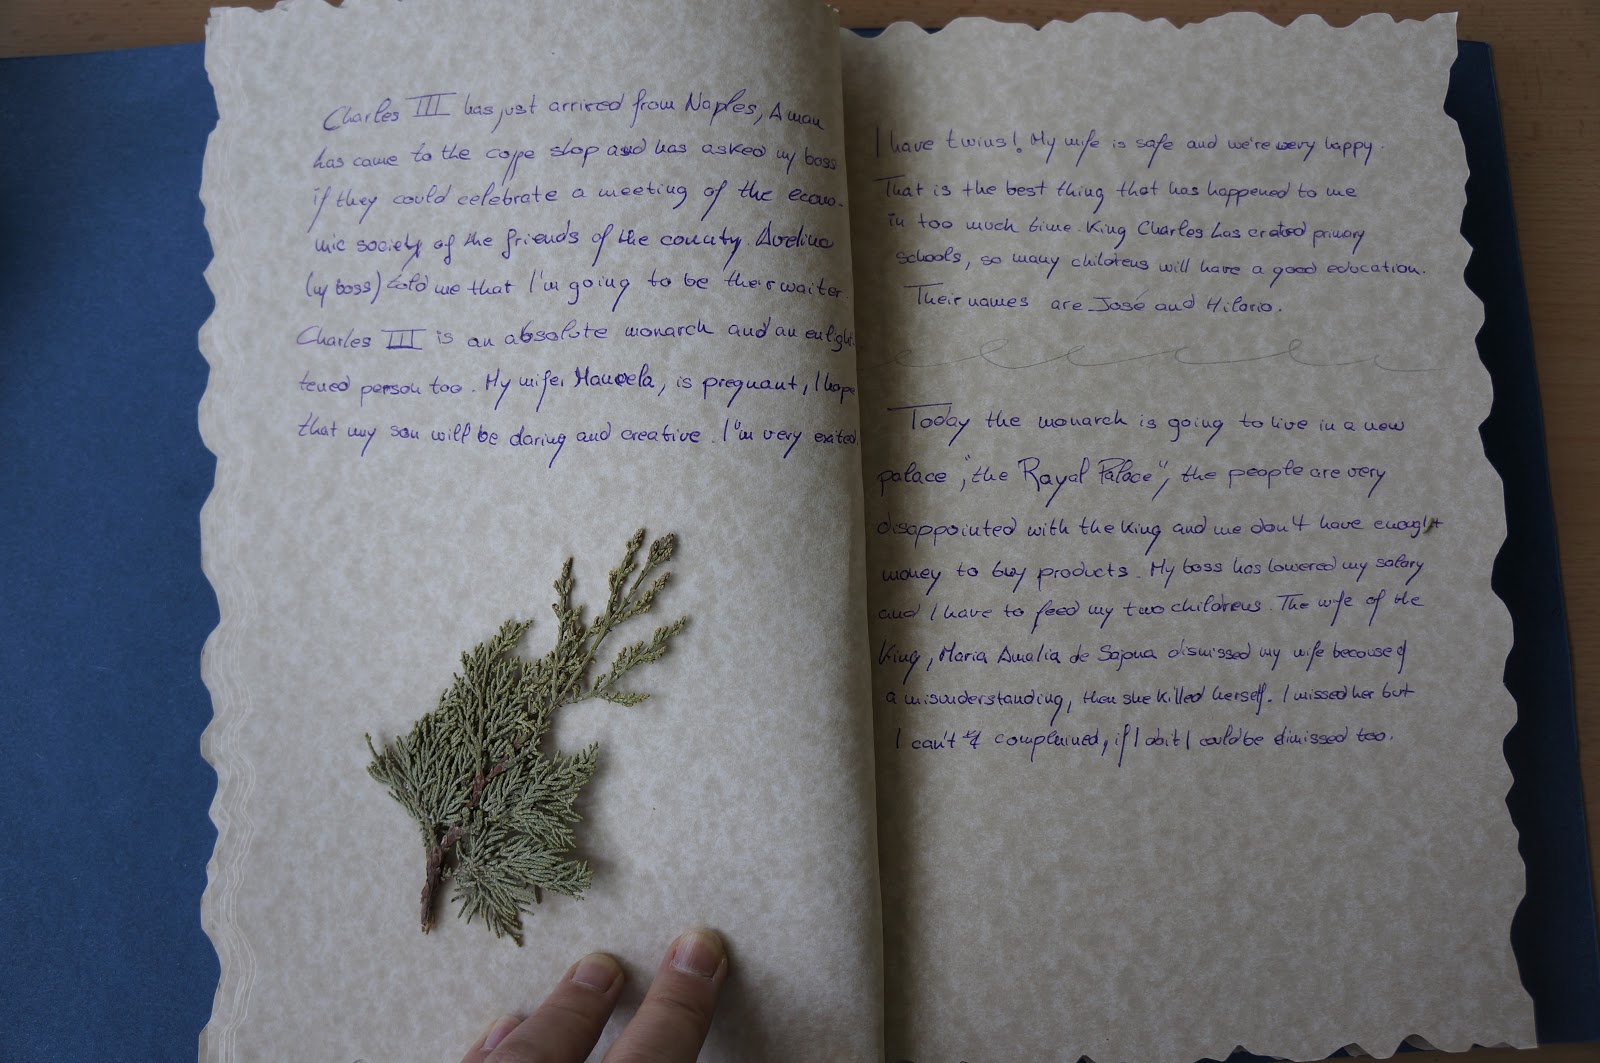 Charles III has just arrived from Naples, A man
has came to the coffe shop and has asked my boss
if they could celebrate a meeting of the econo-
mic society of the friends of the county. Avelino
(my boss) told me that I'm going to be their waiter.
Charles III is an absolute monarch and an enligh
tened person too. My wife, Manuela, is pregnant, I hope
that my son will be daring and creative. I'm very exited
I have twins! My wife is safe and we're very happy.
That is the best thing that has happened to me
in too much time. King Charles has crated primary
schools, so many childrens will have a good education.
Their names are José and Hilario.
Today the monarch is going to live in a new
palace, "the Royal Palace", the people are very
disappointed with the King and we don't have enought
money to buy products. My boss has lowered my salary
and I have to feed my two childrens. The wife of the
King, Maria Amalia de Sajona dismissed my wife because of
a misunderstanding, then she killed herself. I missed her but
I can't complained, if I do it I could be dimissed too.